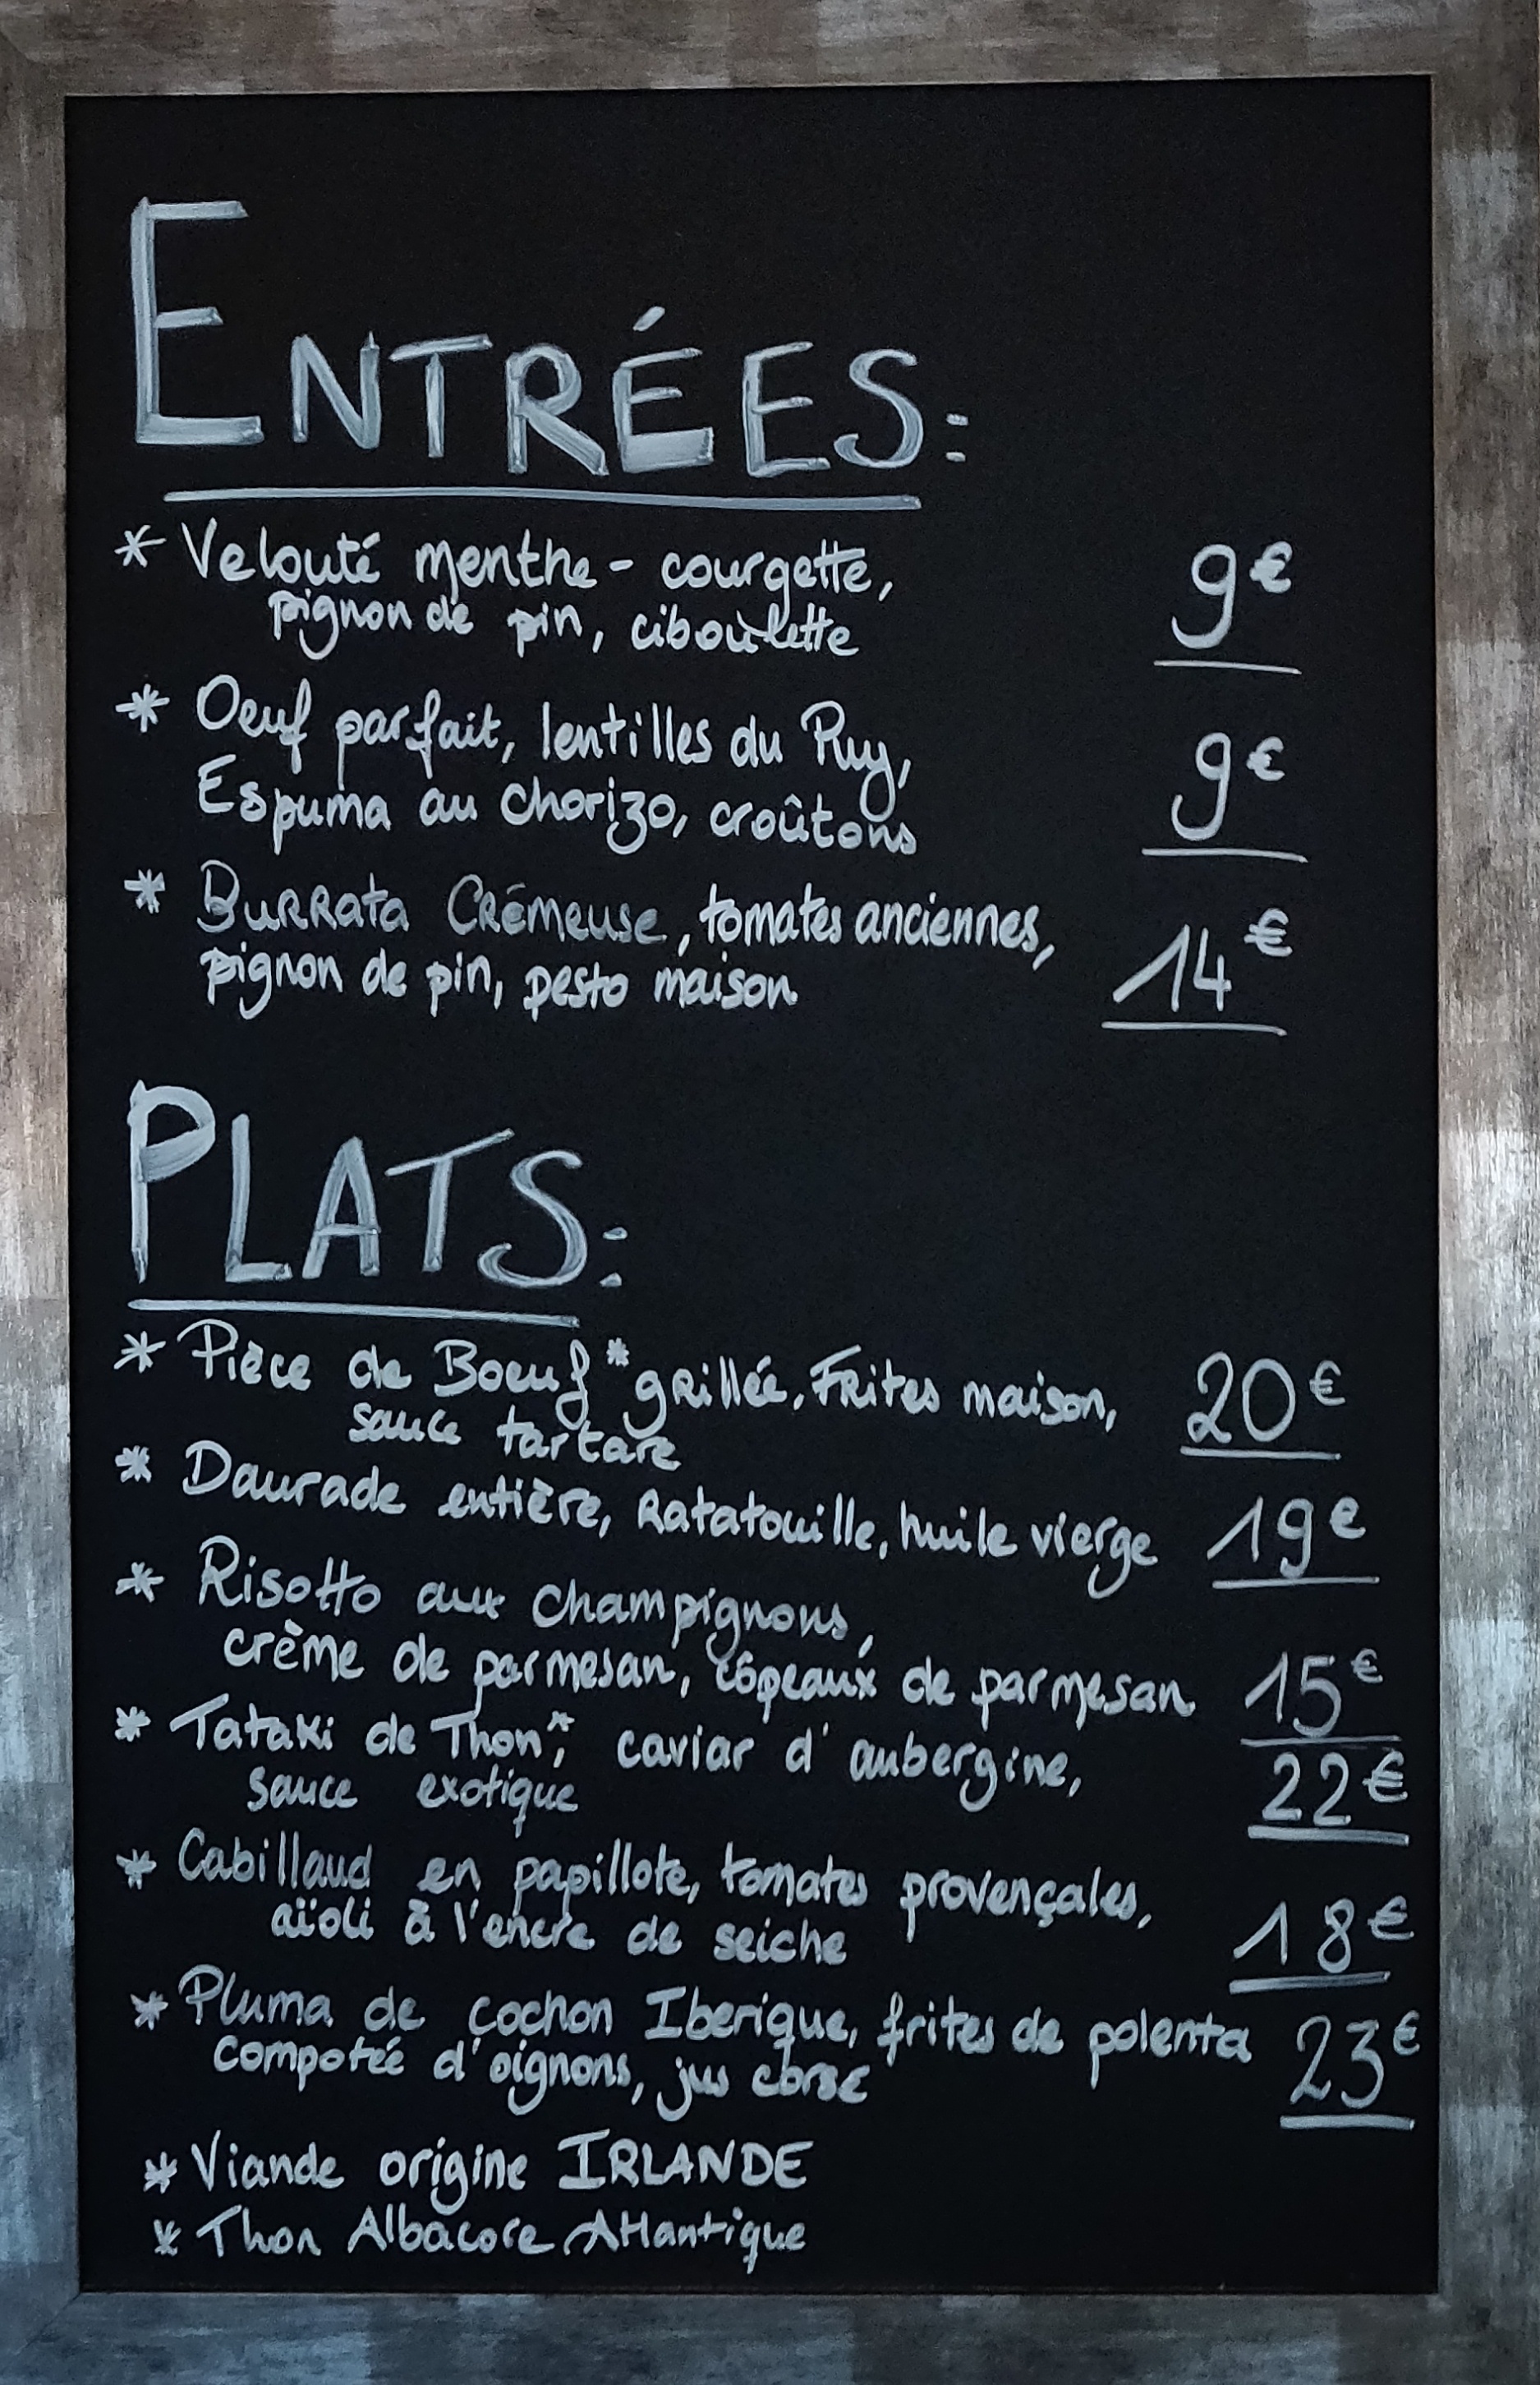 ENTRÉES:
* Velouté menthe - courgette, 9€
pignon de pin, ciboulette
* Oeuf parfait, lentilles du Puy, 9€
Espuma au chorizo, croûtons
* Burrata Crémeuse, tomates anciennes, 14€
pignon de pin, pesto maison
PLATS:
* Pièce de Boeuf * grillée, Frites maison, 20€
sauce tartare
* Daurade entière, Ratatouille, huile vierge 19€
* Risotto aux champignons,
crème de parmesan, copeaux de parmesan 15€
* Tataki de Thon*, caviar d'aubergine, 22€
sauce exotique
* Cabillaud en papillote, tomates provençales, 18€
aïoli à l'encre de seiche
* Pluma de cochon Iberique, frites de polenta 23€
compotée d'oignons, jus corsé
* Viande origine IRLANDE
* Thon Albacore Atlantique